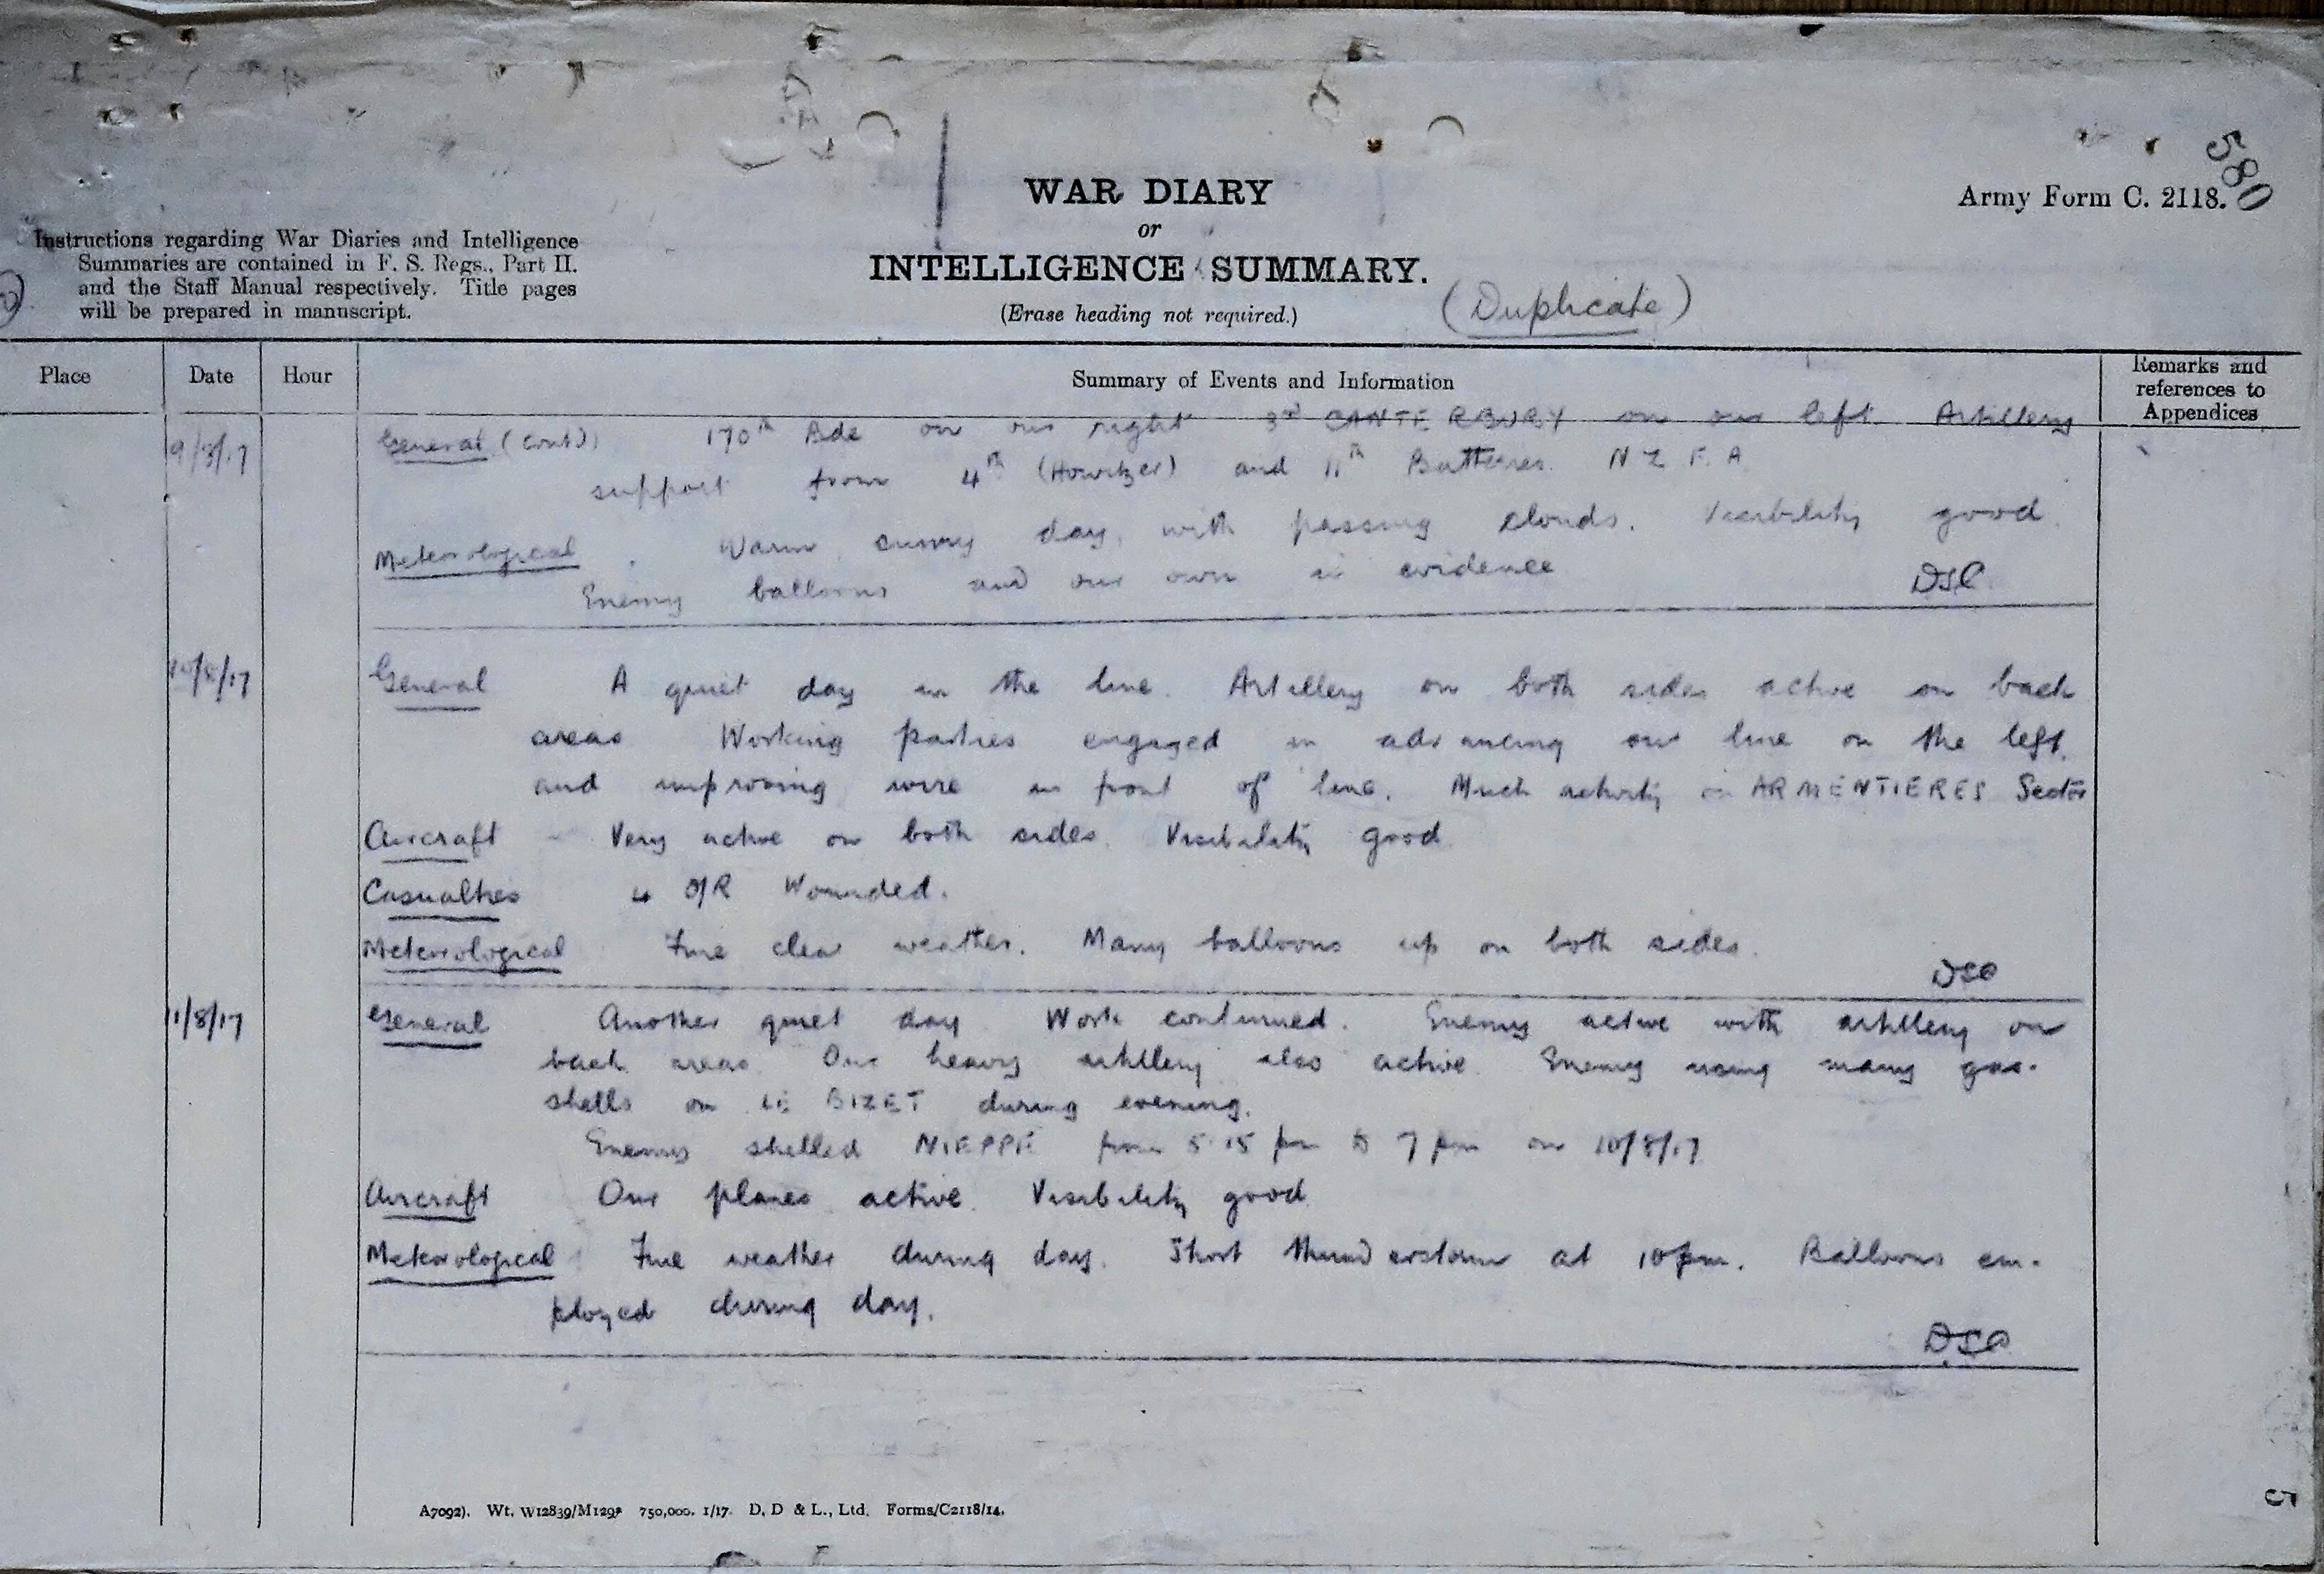 580
WAR DIARY
Army Form C. 2118.
or
Instructions regarding War Diaries and Intelligence
Summaries are contained in F. S. Regs., Part II.
and the Staff Manual respectively. Title pages
will be prepared in manuscript.
INTELLIGENCE SUMMARY.
(Erase heading not required.)
(Duplicate)
Place Date Hour Summary of Events and Information Remarks and references to Appendices
9/8/17 General (Contd) 170th Bde on our right 3rd CANTERBURY on our left. Artillery
support from 4th (Howitzer) and 11th Batteries. N Z F. A
Meteorological. Warm sunny day, with passing clouds. Visibility good.
Enemy balloons and our own in evidence
10/8/17 General A quiet day in the line. Artillery on both sides active on back
areas Working parties engaged in advancing our line on the left.
and improving wire in front of line. Much activity in ARMENTIERES Sector
Aircraft - Very active on both sides. Visibility good.
Casualties 4 O/R Wounded.
Meteorological Fine clear weather. Many balloons up on both sides.
11/8/17 General Another quiet day Work continued. Enemy active with artillery on
back areas. Our heavy artillery also active. Enemy using many gas-
shells on LE BIZET during evening.
Enemy shelled NIEPPE from 5.15 pm to 7 pm on 10/8/17
Aircraft Our planes active. Visibility good.
Meteorological Fine weather during day. Short thunderstorm at 10 pm. Balloons em-
ployed during day.
A7092). Wt. W12839/M129 750,000. 1/17. D. D & L., Ltd. Forms/C2118/14.